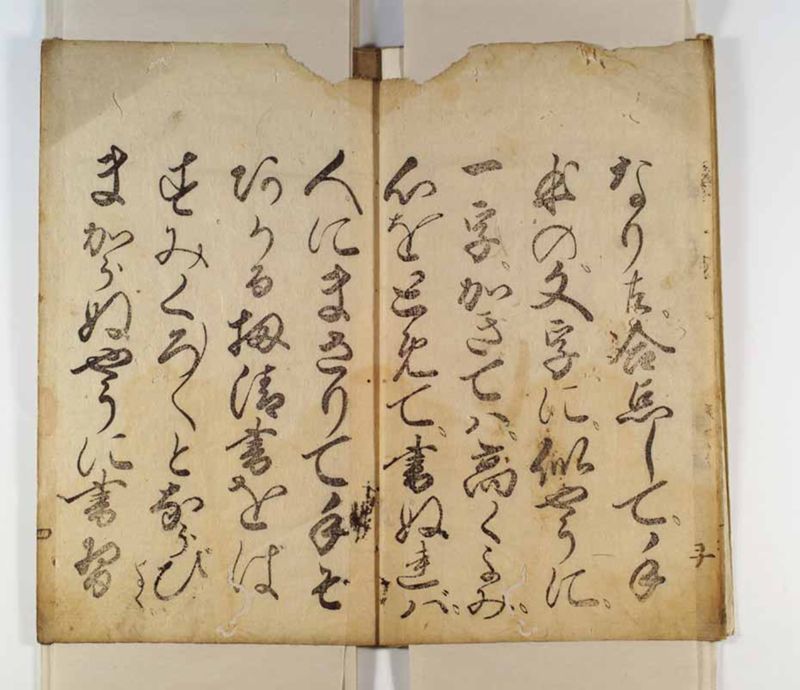 なり合点して。手
本の文字に。似やうに。
一字かきてハ。高くよみ。
心をとめて。書ぬれバ。
人にまさりて手そ
あかる扨清書をば
すみくろ〱とならびよく
まがらぬやうに書習